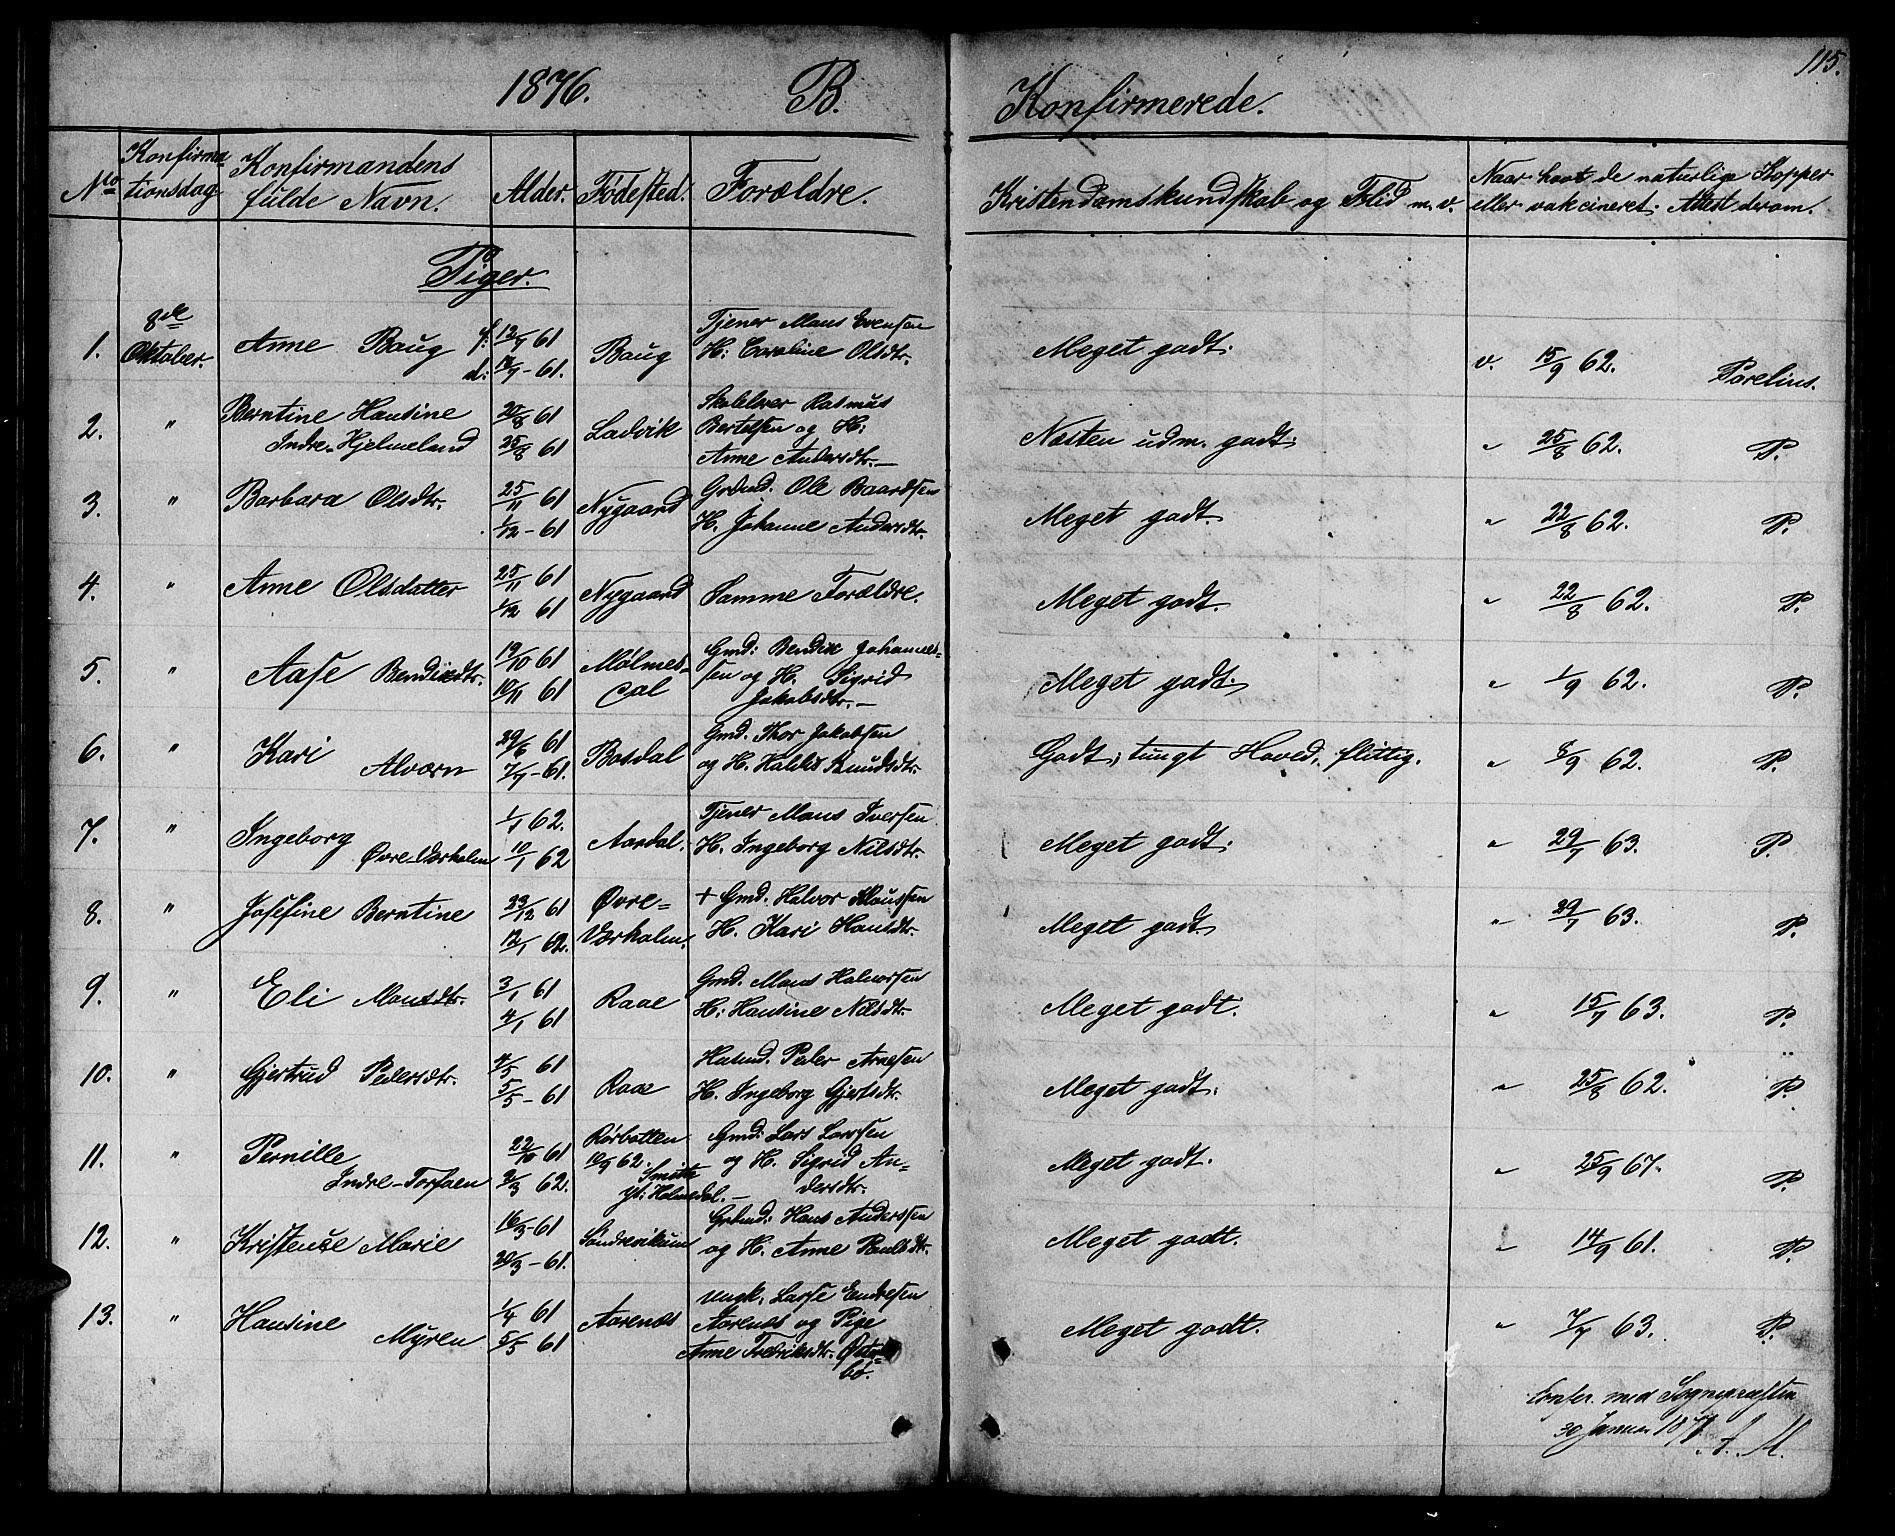 115.
1876. B. Konfirmerede.
No Konfirmationsdag. Konfirmandens fulde Navn. Alder. Fødested. Forældre. Kristendomskundskab og Flid m. v. Naar havt de naturlige Kopper eller vakcineret; Attest derom.
Piger.
1. 8de Oktober. Anne Baug f: 12/7 61 d: 14/7 - 61. Baug Tjener Mons Evensen H: Caroline Olsdtr. Meget godt. v. 15/9 62. Porelius.
2. " Berntine Hansine Indre-Hjelmeland 20/8 61 25/8 61 Ladvik Skolelærer Rasmus Bertelsen og H: Anne Andersdtr. — Næsten udm. godt. " 25/8 62. P.
3. " Barbara Olsdtr. 25/11 61 1/12 - 61 Nygaard Grdmd. Ole Baardsen H. Johanne Andersdtr. Meget godt. " 22/8 62. P.
4. " Anne Olsdatter 25/11 61 1/12 61 Nygaard Samme Forældre. Meget godt. " 22/8 62. P.
5. " Aase Bendixdtr. 19/10 61 10/11 61 Mølmesdal Gmd: Bendix Johannessen og H. Sigrid Jakobsdtr. — Meget godt. " 1/9 62. P.
6. " Kari Alværn 29/6 61 7/7 - 61. Botdal Gmd. Thor Jakobsen og H. Knudsdtr. Godt; tungt Hoved, flittig. " 8/9 62. P.
7. " Ingeborg Øvre-Værholm 1/1 62. 10/1 62 Aardal. Tjener Mons Iversen H. Ingeborg Nilsdtr. Meget godt. " 29/7 63. P.
8. " Josefine Berntine 23/12 61 12/1 62. Øvre-Værholm. + Gmd. Halvor Klaussen H. Kari Hansdtr. Meget godt. " 29/7 63. P.
9. " Eli Monsdtr. 3/1 61 4/1 61 Raae Gmd. Mons Halvorsen H: Hansine Nilsdtr. Meget godt. " 15/7 63. P.
10. " Gjertrud Pedersdtr. 4/5 61 5/5 - 61 Raae Husmd. Peder Arnesen H. Ingeborg Gjertsdtr. Meget godt. " 25/8 62. P.
11. " Pernille Indre-Torsæn 22/10 61 2/3 62. Rørbotten 10/9 62. yt: Holmedal. — Gmd: Lars Larssen og H. Sigrid Andersdtr. Meget godt. " 25/9 67. P.
12. " Kristense Marie 16/3 - 61 20/3 - 61. Søndrevikum Grbmd: Hans Anderssen og H. Anne Paulsdtr. Meget godt. " 14/9 61. P.
13. " Hansine Myren 1/4 61 5/5 61 Aarenæs Ungk. Lasse Endresen Aarenæs og Pige Anne Fredriksdtr. Østerbø. Meget godt. " 7/7 63. P.
Confer. med Sognepræsten
30 Januar 1878 A. M.